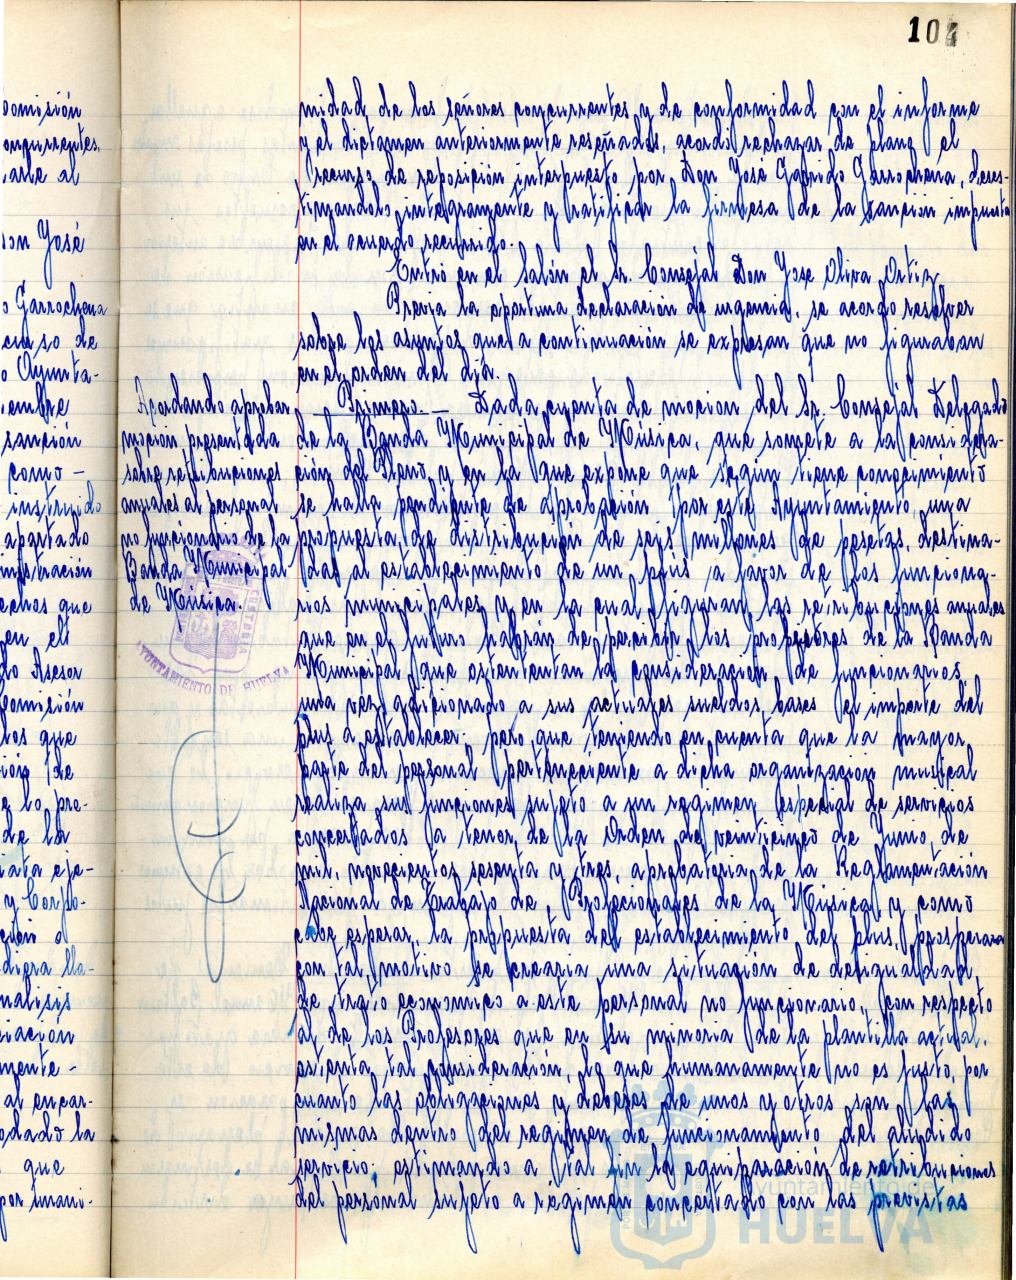 104
omisión
oncurrentes,
arle al
on José
o Garrochena
curso de
o Ayunta-
iembre
sanción
como -
instruido
apartado
nistración
echos que
en el
do Asesor
omisión
los que
ión de
e lo pre-
de la
iata eje-
y Corpo-
diera lla-
nalisis
iación
mente -
al encar-
odado la
que
por unani-
midad de los señores concurrentes y de conformidad con el informe
y el dictamen anteriormente reseñados, acordó rechazar de plano el
recurso de reposición interpuesto por Don José Garrido Garrochena, deses-
timandolo integramente y ratificar la firmesa de la sancion impuesta
en el acuerdo recurrido.
Entró en el salón el Sr. Consejal Don Jose Oliva Ortiz
Previa la oportuna declaración de urgencia, se acordo resolver
sobre los asuntos que a continuación se expresan que no figuraban
en el orden del día.
Acordando aprobar
mocion presentada
sobre retribuciones
anuales al personal
no funcionario de la
Banda Municipal
de Música.
AYUNTAMIENTO DE HUELVA
Primero. — Dada cuenta de mocion del Sr. Consejal Delegado
de la Banda Municipal de Música, que somete a la considera-
ción del Pleno y en la que expone que según tiene conocimiento
se halla pendiente de aprobación por este Ayuntamiento, una
propuesta de distribución de seis millones de pesetas, destina-
das al establecimiento de un plus a favor de los funciona-
rios municipales y en la cual figuran las retribuciones anuales
que en el futuro habrán de percibir los profesores de la Banda
Municipal que ostentan la consideración de funcionarios
una vez adicionado a sus actuales sueldos bases el importe del
plus a establecer; pero que teniendo en cuenta que la mayor
parte del personal perteneciente a dicha organización musical
realiza sus funciones sujeto a un regimen especial de servicios
concertados a tenor de la Orden de veinticinco de Junio de
mil novecientos sesenta y tres, aprobatoria de la Reglamentación
Nacional de Trabajo de Profesionales de la Música y como
cabe esperar, la propuesta del establecimiento del plus, prosperara
con tal motivo se crearia una situación de desigualdad
de trato economico a este personal no funcionario, con respecto
al de los Profesores que en su minoria de la plantilla actual,
ostenta tal consideración, lo que humanamente no es justo por
cuanto las obligaciones y deberes de unos y otros son las
mismas dentro del regimen de funcionamiento del aludido
servicio, estimando a tal fin la equiparación de retribuciones
del personal sujeto a regimen concertado con las previstas
Ayuntamiento de
HUELVA